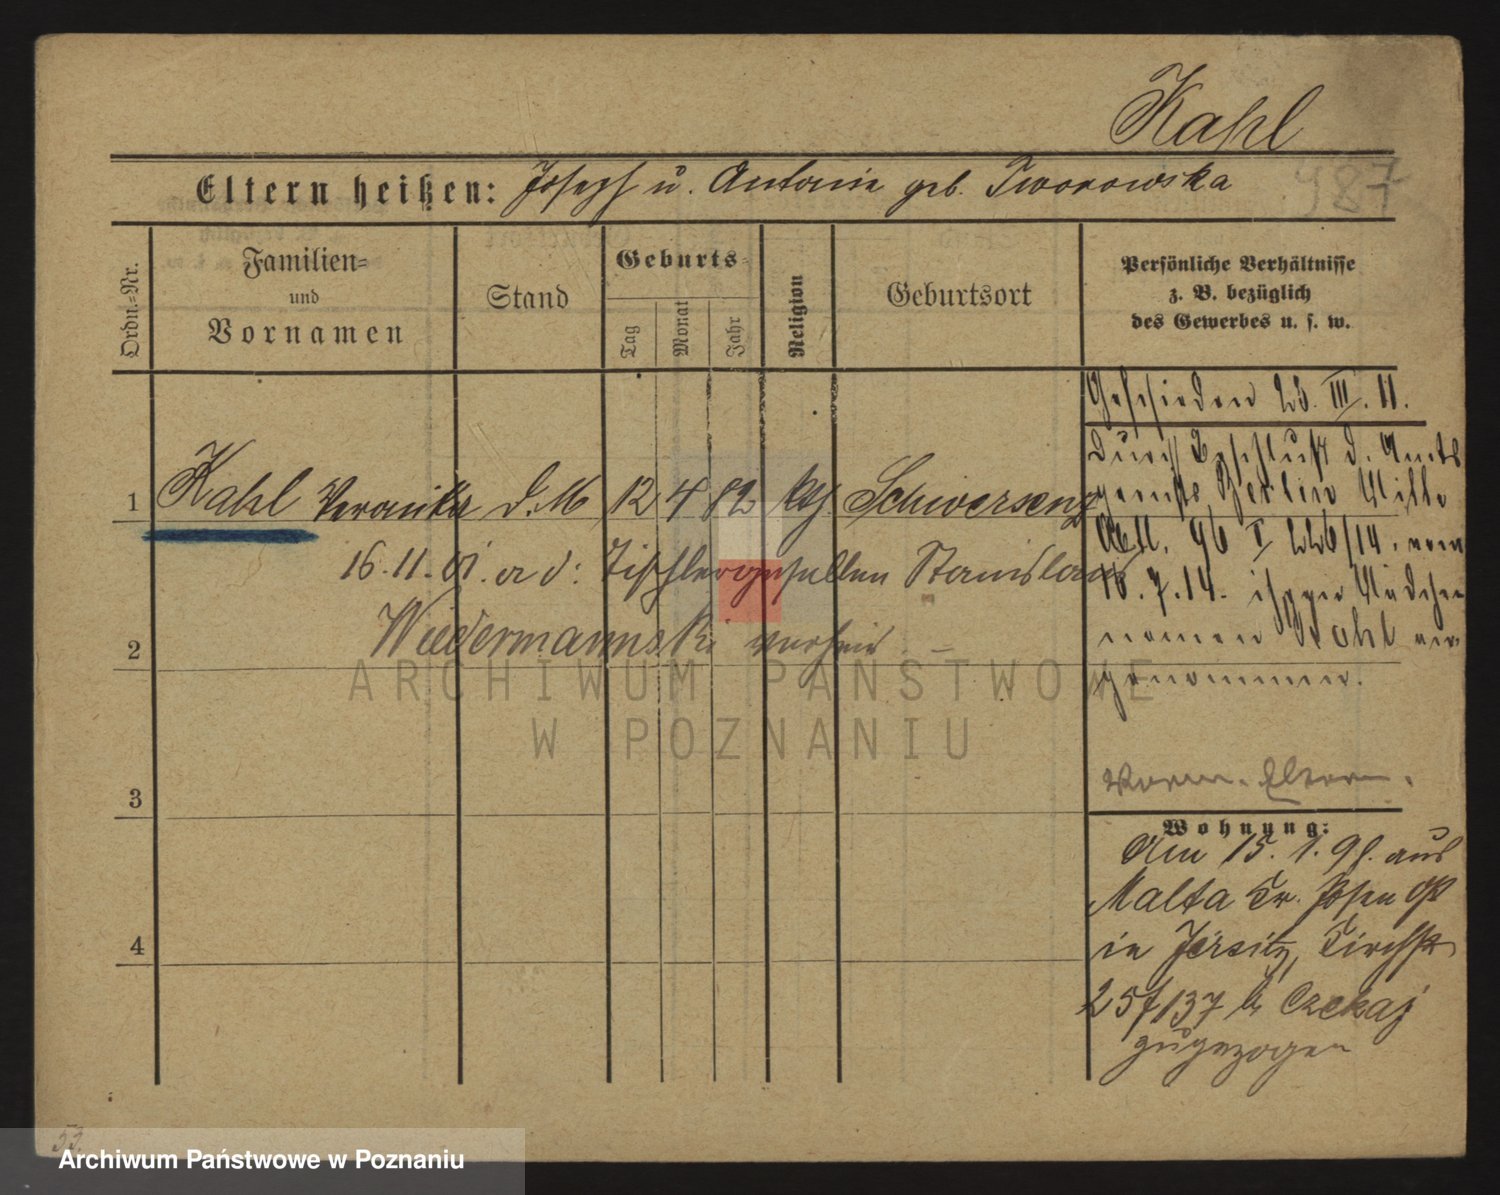 Kahl
Eltern heißen: Joseph u. Antonie geb. Tworowska
987
Ordn.-Nr.
Familien-
und
Vornamen
Stand
Geburts-
Tag
Monat
Jahr
Religion
Geburtsort
Persönliche Verhältnisse
z. B. bezüglich
des Gewerbes u. s. w.
Geschieden 23. III. 11.
Durch Beschluß d. Amts
gerichts Berlin Mitte
Abtl. 96 226/14. vom
18. 7. 14. ihren Mädchen
namen Kahl an-
genommen.
1 Kahl Veronika d. M 12 4 82 kth Schwersenz
16. 11. 01. a d: Tischlergesellen Stanislaus
2 Wiedermannski verheir. –
3
4
Vorm. Eltern.
Wohnung:
Am 15. 1. 98. aus
Malta Kr. Posen
in Jersitz, Kirchstr
25/137 b Czekaj
zugezogen
53.
ARCHIWUM PAŃSTWOWE
W POZNANIU
Archiwum Państwowe w Poznaniu